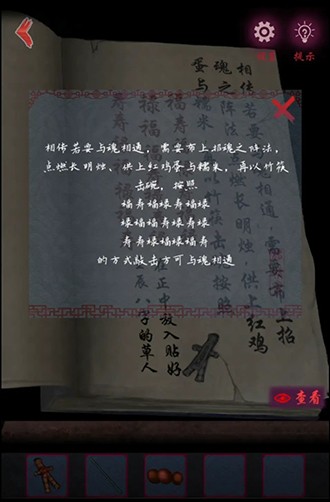 提示
相传若要与魂相通，需要布上招
魂之阵法
蛋与糯米
相传若要与魂相通，需要布上招魂之阵法，
点燃长明烛、供上红鸡蛋与糯米，再以竹筷
击碗，按照
福寿福禄寿福禄
禄福福寿禄寿禄
寿寿禄福禄福寿
的方式敲击方可与魂相通
正中放入贴好
八字的草人
查看